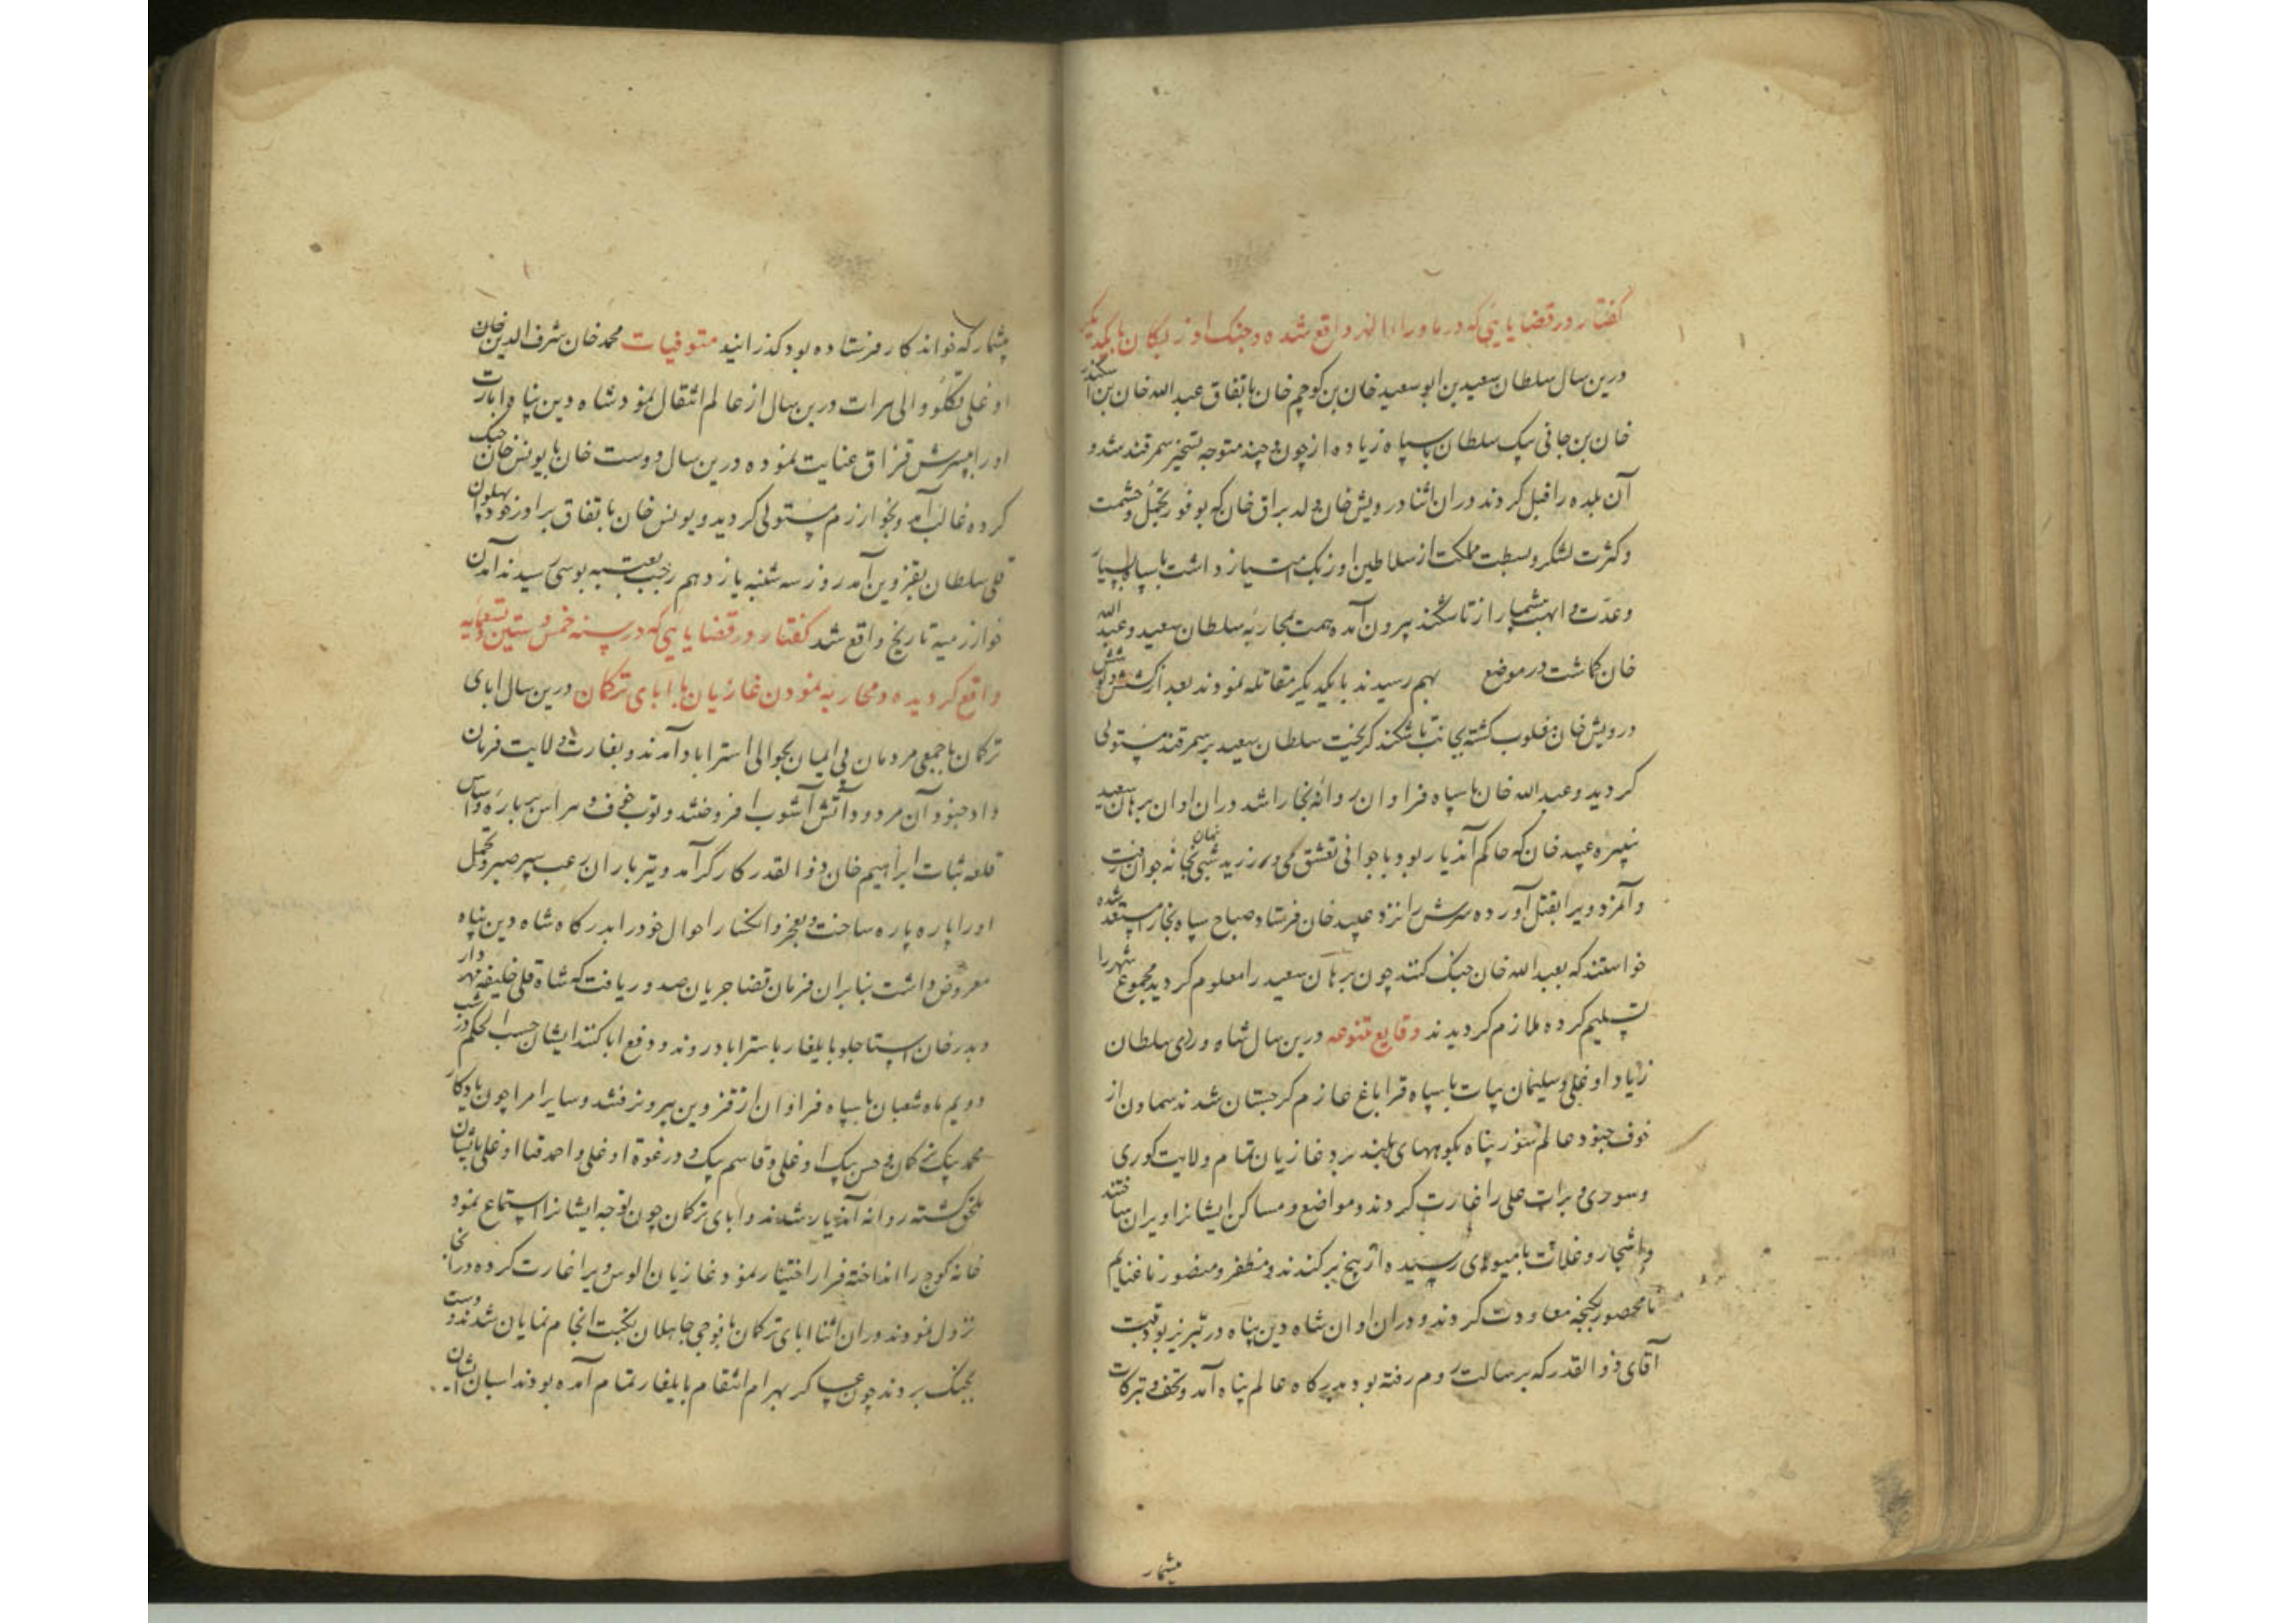 گفتار در قضایایی که در ماوراء النهر واقع شده و جنک اوزبکان با یکدیگر
درین سال سلطان سعید بن ابو سعید خان بن کوچم خان باتفاق عبد الله خان بن اسکندر
خان بن جانی بیک سلطان با سپاه زیاده از چون و چند متوجه تسخیر سمرقند شد و
آن بلده را قبل کردند در ان اثنا درویش خان ولد براق خان که بوفور تجمل و حشمت
و کثرت لشکر و بسطت مملکت از سلاطین اوزبک امتیاز داشت با سپاه بسیار
و عدّت و اهبت بیشمار از تاشکند بیرون آمده همت بمحاربهٔ سلطان سعید و عبد الله
خان کماشت در موضع بهم رسیدند با یکدیکر مقاتله نمودند بعد از کشش و کوشش
درویش خان مغلوب کشته بجانب تاشکند کریخت سلطان سعید بر سمرقند مستولی
کردید و عبد الله خان با سپاه فراوان روانهٔ بخارا شد در ان اوان برهان سعید
نبیرهٔ عبید خان که حاکم آندیار بود با جوانی تعشق می ورزید شبی بخانه جوان رفت
و آنمرد ویرا بقتل آورده سرش را نزد عبید خان فرستاد صباح سپاه بخارا مستعد شده
خواستند که بعبد الله خان جنک کنند چون برهان سعید را معلوم کردید مجموع شهر را
تسلیم کرده ملازم کردیدند وقایع متنوعه درین سال شاه وردی سلطان
زیاد اوغلی و سلیمان بیات با سپاه قراباغ عازم کرجستان شدند سماون از
خوف جنود عالم سوز پناه بکوههای بلند برد غازیان تمام ولایت کوری
و سوری و برات علی را غارت کردند و مواضع و مساکن ایشانرا ویران ساختند
و اشجار و غلات با میوهای رسیده از بیخ برکندند و مظفر و منصور با غنایم
نامحصور بکنجه معاودت کردند و در ان اوان شاه دین پناه در تبریز بود قبت
آقای ذوالقدر که برسالت روم رفته بود بدرکاه عالم پناه آمد و تحف و تبرکات
بیشمار
بیشمار که خواندکار فرستاده بود کذرانید متوفیات محمد خان شرف الدین خان
اوغلی تکلو والی هرات درین سال از عالم انتقال نمود شاه دین پناه ایالت
او را بپسرش قزاق عنایت نموده درین سال دوست خان با یونس خان جنک
کرده غالب آمد و بخوارزم مستولی کردید و یونس خان باتفاق برادر خود پهلوان
قلی سلطان بقزوین آمد روز سه شنبه یازدهم رجب بعتبه بوسی رسیدند آمدن
خوارزمیه تاریخ واقع شد گفتار در قضایایی که در سنه خمس و ستین و تسعمایه
واقع کردیده و محاربه نمودن غازیان با ابای ترکمان درین سال ابای
ترکمان با جمعی مردمان بی ایمان بحوالی استراباد آمدند و بغارت ولایت فرمان
داد جنود آن مردود آتش آشوب افروختند و توب خوف و هراس بر باره و اساس
قلعه ثبات ابراهیم خان ذوالقدر کارکر آمد و تیر باران رعب سپر صبر و تحمل
او را پاره پاره ساخت و بعجز و انکسار احوال خود را بدرکاه شاه دین پناه
معروض داشت بنابران فرمان قضا جریان صدور یافت که شاه قلی خلیفه مهردار
و بدر خان استاجلو بایلغار باستراباد روند و دفع ابا کنند ایشان حسب الحکم در شب
دویم ماه شعبان با سپاه فراوان از قزوین بیرون رفتند و سایر امرا چون یادکار
محمد بیک ترکمان و حسن بیک اوغلی و قاسم بیک و درغوة اوغلی و احمد قیا اوغلی بایشان
ملحق کشته روانه آندیار شدند و ابای ترکمان چون توجه ایشانرا استماع نمود
خانه کوچ را انداخته فرار اختیار نمود غازیان الوس ویرا غارت کرده در انجا
نزول نمودند در ان اثنا ابای ترکمان با فوجی جاهلان نکبت انجام نمایان شدند و دست
بجنک بردند چون عساکر بهرام انتقام بایلغار تمام آمده بودند اسبان ایشان